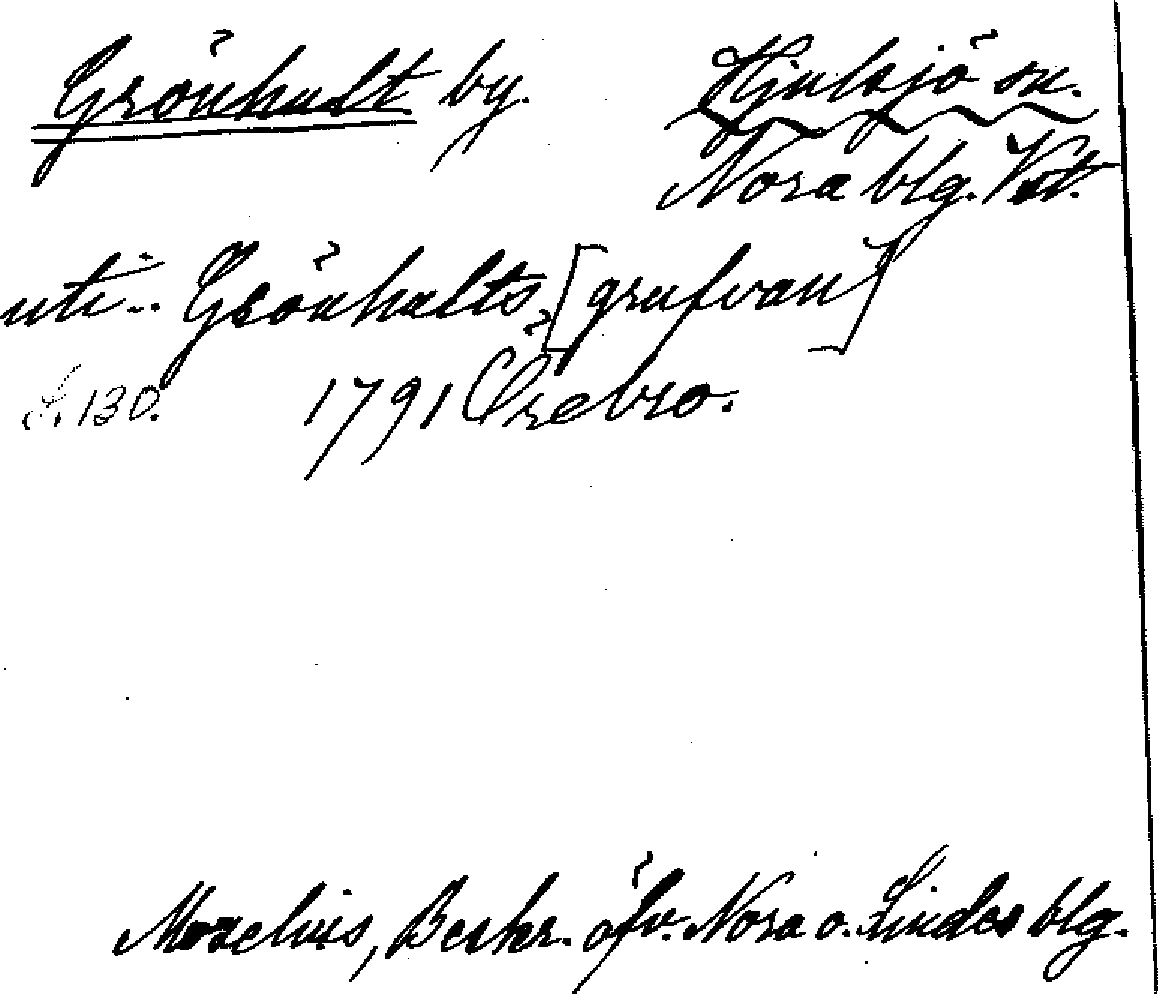 Grönhult by. Hjulsjö sn.
Nora blg. Vstm.
uti .. Grönhults [grufvan]
S. 130. 1791 Örebro.
Morelius, Beskr. öfv. Nora o. Lindes blg.